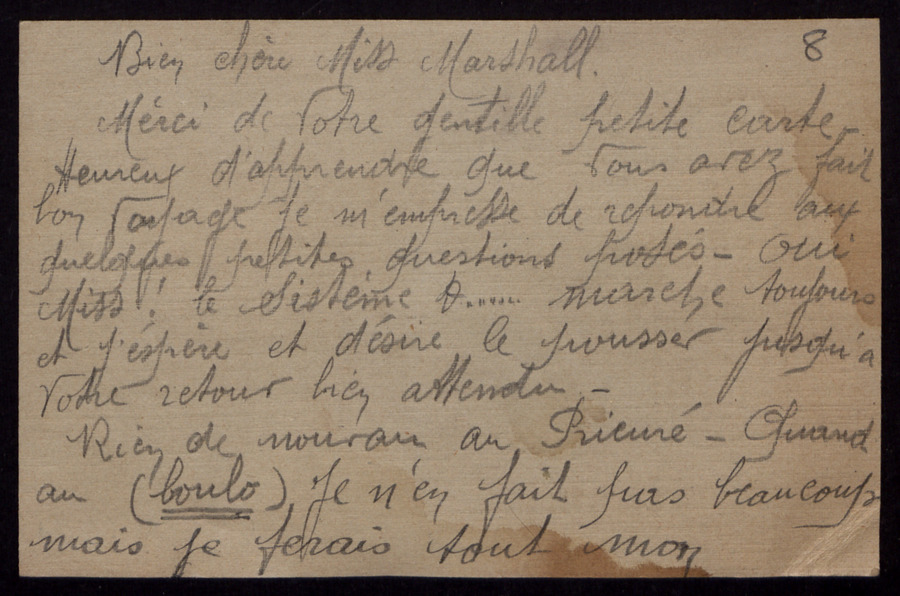 8
Bien chère Miss Marshall.
Mérci de Votre gentille petite carte
Heureux d'apprendre que Vous avez fait
bon Voyage je m'empresse de repondre aux
quelques petites questions posés - Oui
Miss! le Sistéme D....... marche toujours
et j'éspère et désire le pousser jusqu'a
Votre retour bien attendu -
Rien de nouvau au Prieuré - Quand
au (boulo) Je n'en fait pas beaucoup
mais je ferais tout mon